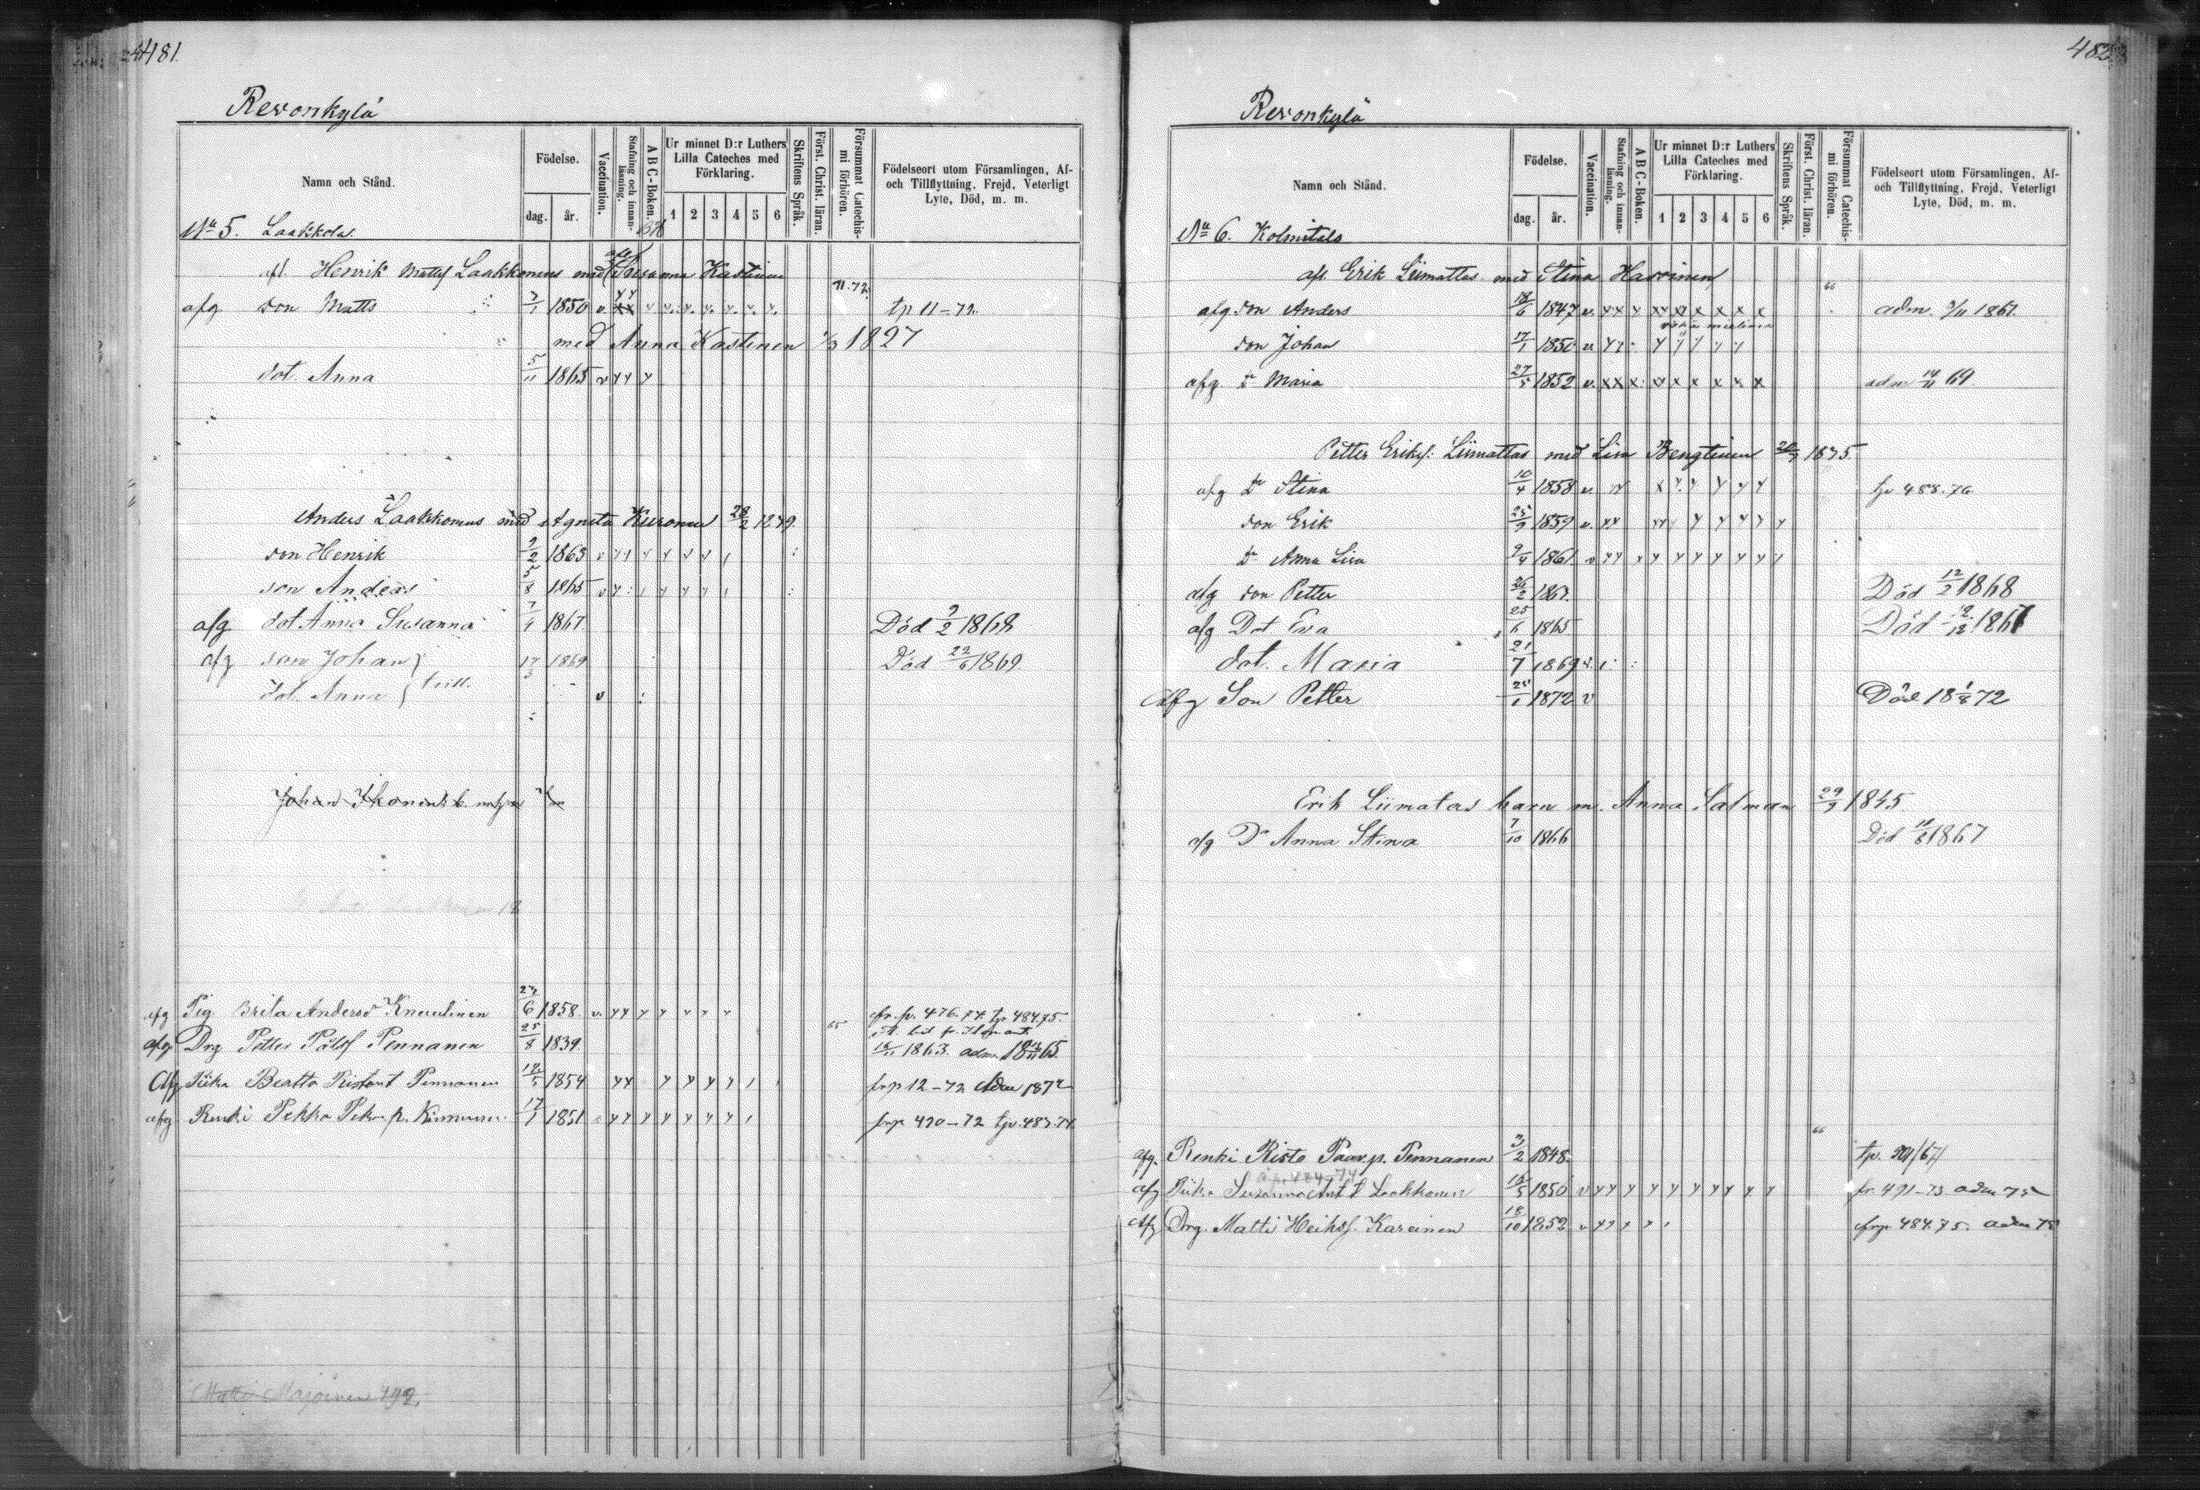 481.
Revonkylä
Namn och Stånd.
Födelse.
dag. år.
Vaccination.
Stafning och innan-läsning.
A B C-Boken.
Ur minnet D:r Luthers Lilla Cateches med Förklaring.
1 2 3 4 5 6
Skriftens Språk.
Först. Christ. läran.
Försummat Catechis-mi förhören.
Födelseort utom Församlingen, Af- och Tillflyttning, Frejd, Veterligt Lyte, Död, m. m.
No 5. Laakkola
afl. Henrik Mattss Laakkonens med Susanna Kastinen
afg son Matts 1850 v. 11-72 tp 11-72
med Anna Kastinen 1827
dot. Anna 5/11 1865 v
Anders Laakkonens med Agneta Kuronen 28/2 1839
son Henrik 9/2 1863
son Anders 5/8 1865
afg dot Anna Susanna 1867 Död 9/2 1868
afg son Johan } tvill. 1869 Död 1869.
dot. Anna v
Johan Ikonens
afg Pig Brita Andersd Knuutinen 6 1858. v. fr. p. 476-74. tp 484 75.
afg Drg Petter Pålss Pennanen 25/8 1839. 1863. adm. 18 65
Afg Piika Beatta Ristont Pennanen 1854 frp 12-72 Adm 1872
afg Renki Pekka Pek. p. Kinnunen 17/1 1851 frp 490-72 tp. 483.74.
Matti 492.
482
Revonkylä
Namn och Stånd.
Födelse.
dag. år.
Vaccination.
Stafning och innan-läsning.
A B C-Boken.
Ur minnet D:r Luthers Lilla Cateches med Förklaring.
1 2 3 4 5 6
Skriftens Språk.
Först. Christ. läran.
Försummat Catechis-mi förhören.
Födelseort utom Församlingen, Af- och Tillflyttning, Frejd, Veterligt Lyte, Död, m. m.
No 6. Kolmitalo
afl. Erik Liimattas med Stina Havoinen
afg son Anders 18/6 1847 v. adm. 1861.
son Johan 17/1 1850
afg Dr Maria 27/5 1852 v. adm 69
Petter Erikss: Liimattas med Lisa Bengtinen 1835.
afg Dr Stina 10/4 1858 v. tp 488.76.
son Erik 25/9 1859 v.
Dr Anna Lisa 9/4 1861. v
afg son Petter 26/2 1863. Död 12/2 1868
afg Dot Eva 25/6 1865 Död 1867
dot. Maria 21/7 1869
Afg Son Petter 1872 v Död 18 72
Erik Liimatas barn m. Anna Salman 29/9 1845
afg Dr Anna Stina 7/10 1866 Död 1867
afg. Renki Risto Paav.p. Pennanen 3/2 1848. tp. 67
484-74
afg Piika Susanna Ant t Laakkonen 18/5 1850 v fr. 491-73 adm 75
Afg Drg. Matti Heikss. Karvinen 18/10 1852 v frp. 484.75. adm 78